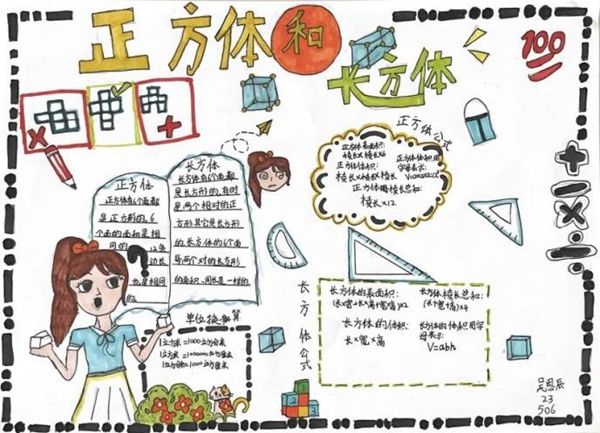 正方体和
长方体
100
正方体
正方体有6个面都
是正方形的,6
个面的面积是相
同的
也是相同
的
长方体
长方体有6个面都
是长方形的,有时
是两个相对的正
方形其它是长方形
的,长方体的6个面
每两个对的长方形
的面积、周长是一样的
?
正方体公式
正方体表面积:
棱长×棱长×6
正方体体积:
棱长×棱长×棱长
正方体体积用
字母表示:
正方体棱长总和:
棱长×12
+-×÷
单位换算
1立方米=1000立方分米
1立方米=1000000立方厘米
1立方分米=1000立方厘米
长方体公式
长方体的表面积:
(长×宽+长×高+宽×高)×2
长方体棱长总和:
(长+宽+高)×4
长方体的体积:
长×宽×高
长方体的体积用字
母表示:
V=abh
23
506